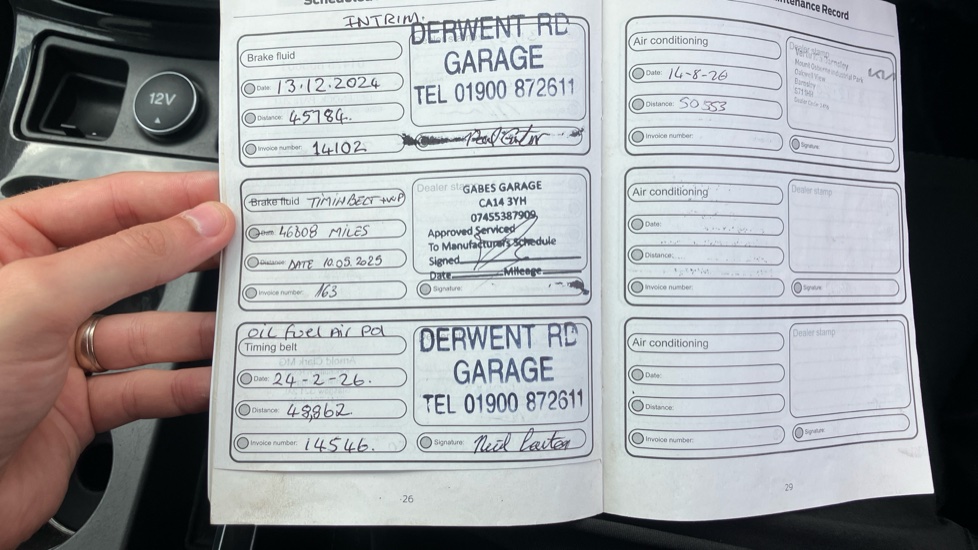 INTRIM.
Brake fluid
Date: 13.12.2024
Distance: 45784.
Invoice number: 14102
DERWENT RD
GARAGE
TEL 01900 872611
Brake fluid TIMINBELT + WP
46808 MILES
Distance: DATE 10.05.2025
Invoice number: 163
Dealer
GABES GARAGE
CA14 3YH
07455387909
Approved Serviced
To Manufacturers Schedule
Signed
Date Mileage
Signature:
OIL fuel Air Pol
Timing belt
Date: 24-2-26.
Distance: 48,862
Invoice number: 14546.
DERWENT RD
GARAGE
TEL 01900 872611
Signature:
26
Maintenance Record
Air conditioning
Date: 14-8-26
Distance: 50553
Invoice number:
Dealer stamp
KIA
Signature
Air conditioning
Date:
Distance:
Invoice number:
Dealer stamp
Signature
Air conditioning
Date:
Distance:
Invoice number:
Dealer stamp
Signature
29
12V